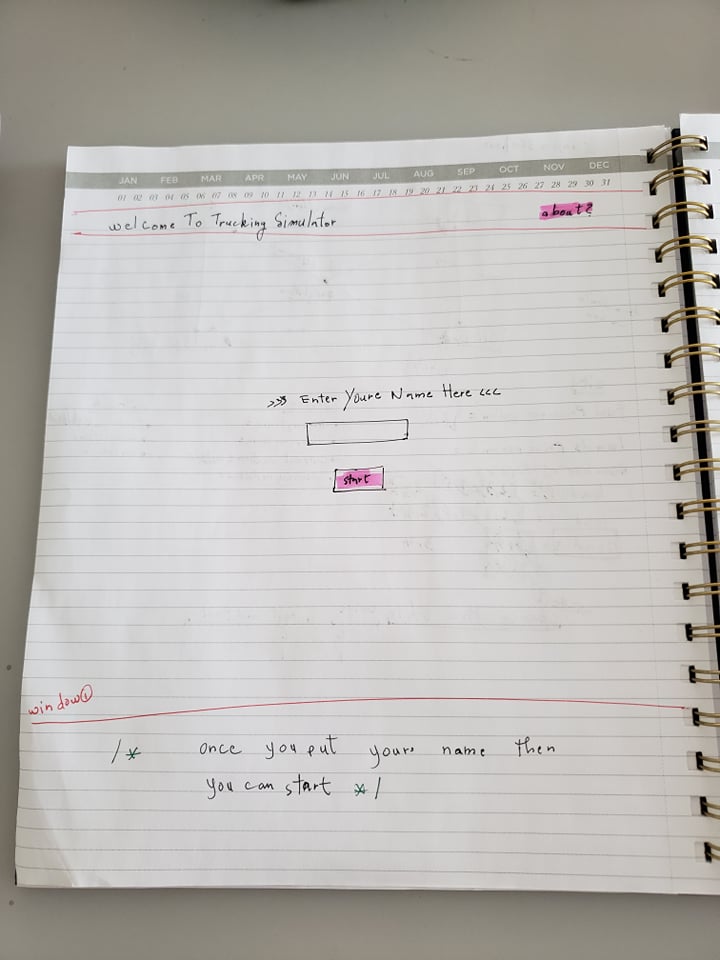 JAN FEB MAR APR MAY JUN JUL AUG SEP OCT NOV DEC
01 02 03 04 05 06 07 08 09 10 11 12 13 14 15 16 17 18 19 20 21 22 23 24 25 26 27 28 29 30 31
welcome To Trucking Simulator about?
>>> Enter Youre Name Here <<<
start
window①
/* once you put your name then
you can start */